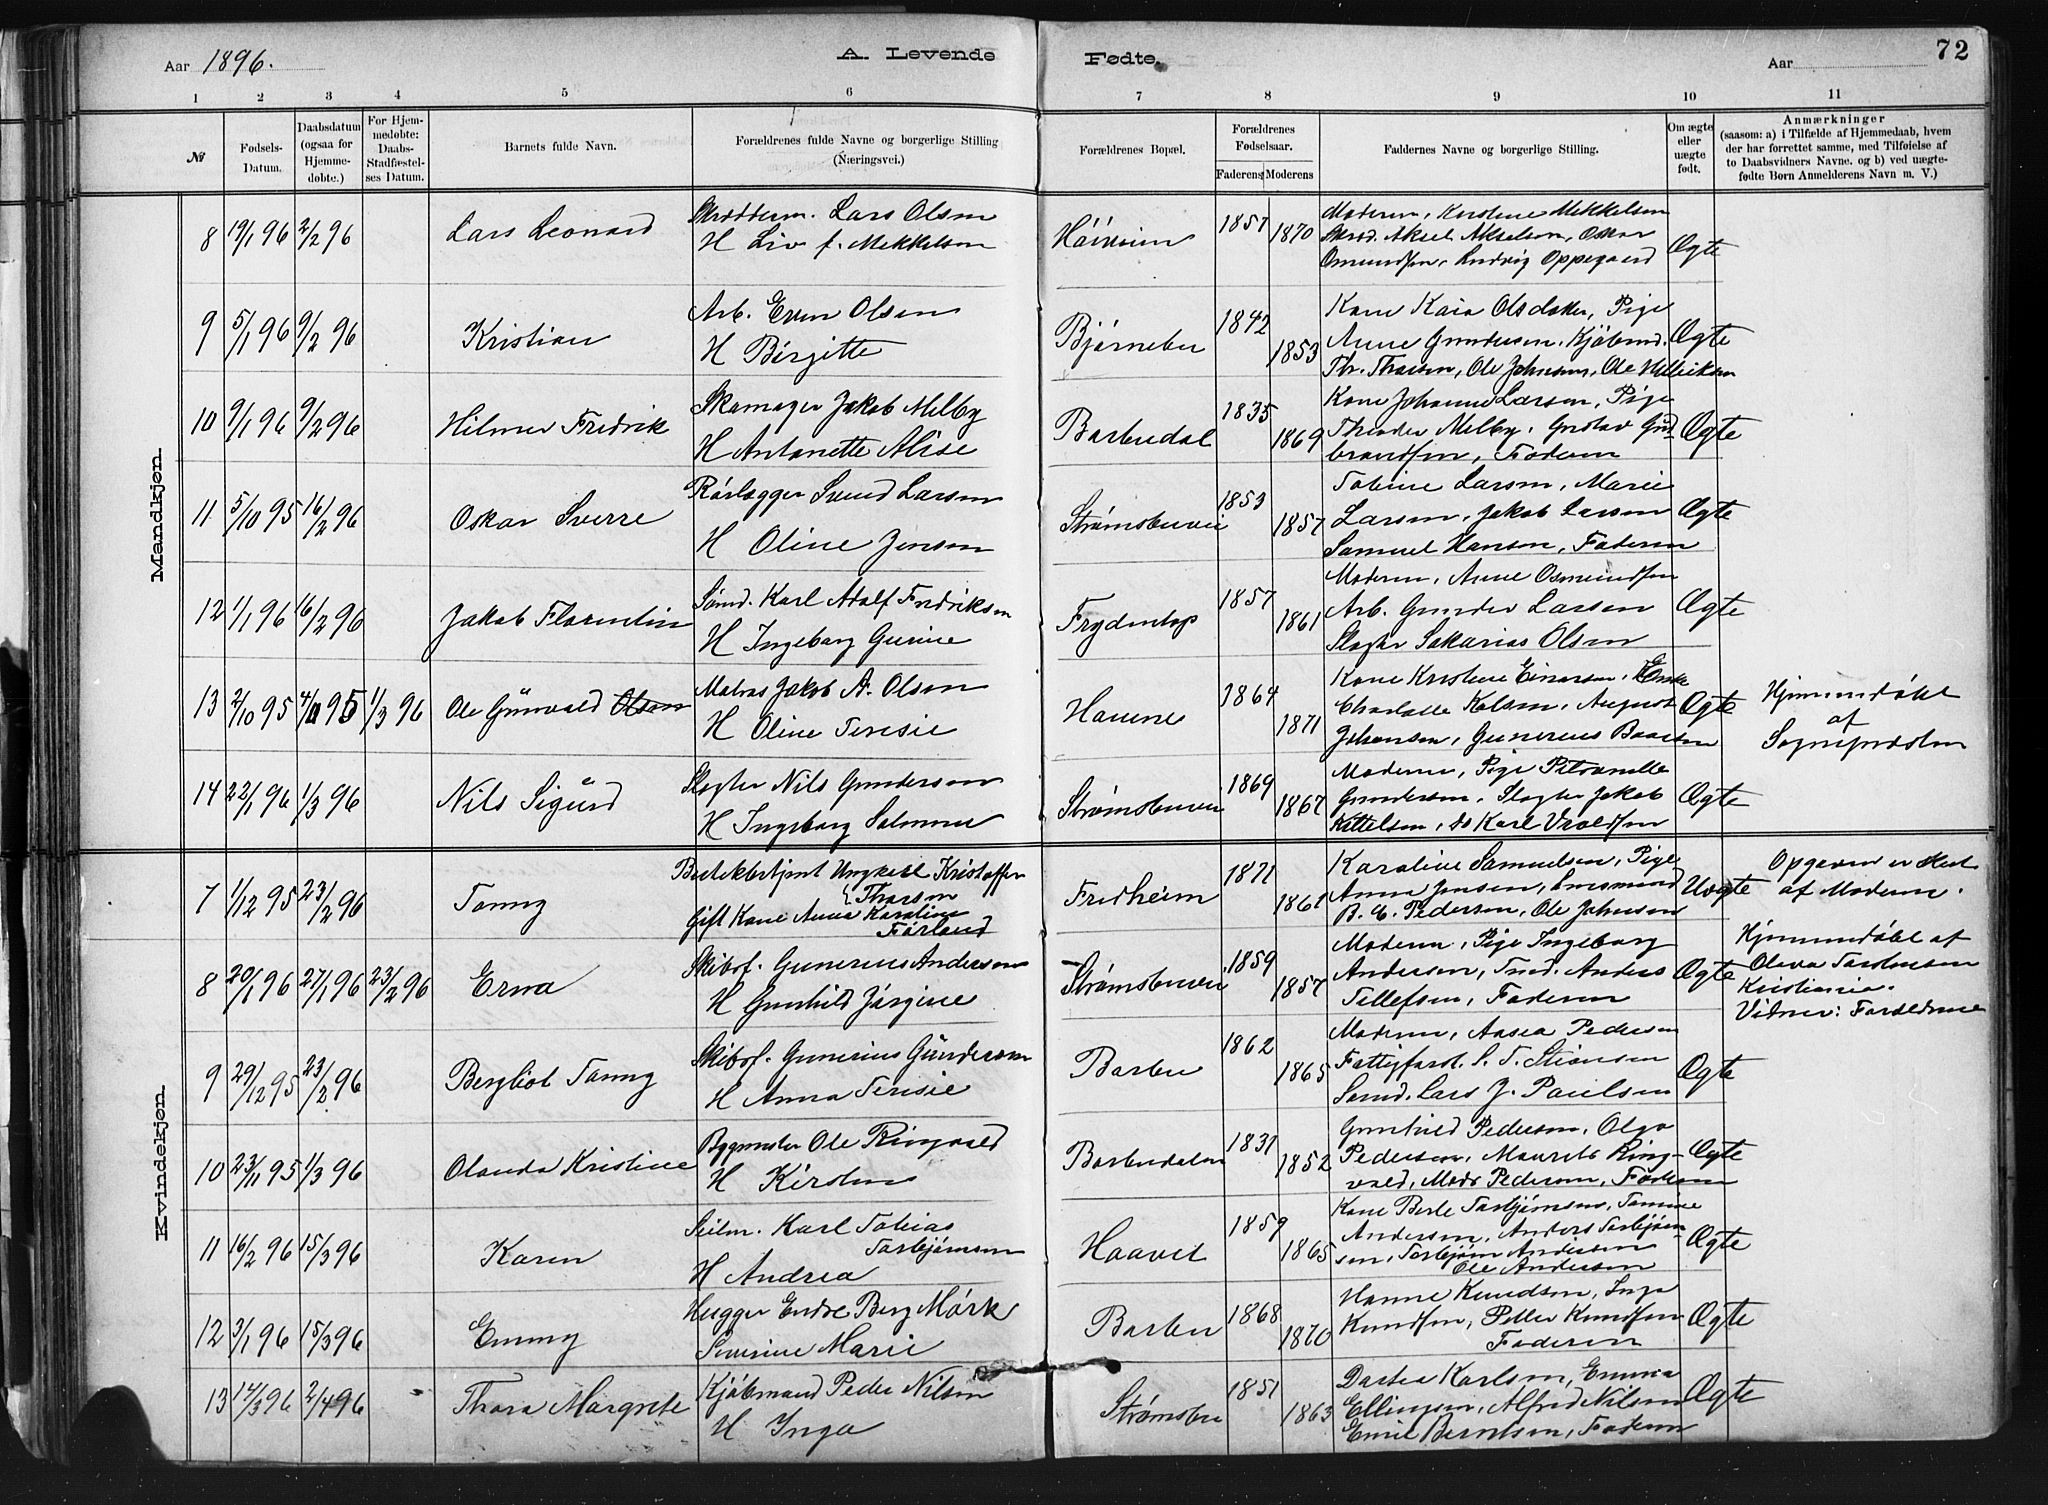 Aar 1896.
A. Levende
Fødte.
Aar
72
1 2 3 4 5 6 7 8 9 10 11
№
Fødsels-
Datum.
Daabsdatum
(ogsaa for
Hjemme-
døbte.)
For Hjem-
medøbte:
Daabs-
Stadfæstel-
ses Datum.
Barnets fulde Navn.
Forældrenes fulde Navne og borgerlige Stilling
(Næringsvei.)
Forældrenes Bopæl.
Forældrenes
Fødselsaar.
Faderens Moderens
Faddernes Navne og borgerlige Stilling.
Om ægte
eller
uægte
født.
Anmærkninger
(saasom: a) i Tilfælde af Hjemmedaab, hvem
der har forrettet samme, med Tilføielse af
to Daabsvidners Navne. og b) ved uægte-
fødte Børn Anmelderens Navn m. V.)
Mandkjøn.
8 19/1 96 2/2 96 Lars Leonard
Lars Olsen
H Liv f. Mekkelsen
1857 1870
Moderen, Kirstine Mekkelsen
Aksel Akselsen, Oskar
Osmundsen, Ludvig Oppegaard
Ægte
9 5/1 96 9/2 96 Kristian
Arb. Even Olsen
H Birgitte
Bjørnebo 1842 1853
Kone Kaia Olsdatter, Pige
Anne Gundersen, Kjøbmd.
Th. Thorsen, Ole Johnsen, Ole
Ægte
10 9/1 96 9/2 96 Hilmer Fredrik
Skomager Jakob Melby
H Antonette Alise
Barbudal 1835 1869
Kone Johanne Larsen, Pige
Theodor Melby, Gustav Gud-
brandsen, Faderen
Ægte
11 5/10 95 16/2 96 Oskar Sverre
Rørlægger Svend Larsen
H Oline Jensen
Strømsbuvei 1853 1857
Tobine Larsen, Marie
Larsen, Jakob Larsen
Samuel Hansen, Faderen
Ægte
12 1/1 96 16/2 96 Jakob Florentin
Sømd. Karl Adolf Fredriksen
H Ingeborg Gurine
Frydentop 1857 1861
Moderen, Anne Osmundsen
Arb. Gunder Larsen
Slagter Sakarias Olsen
Ægte
13 2/10 95 4/10 95 1/3 96 Ole Gunvald Olsen
Matros Jakob A. Olsen
H Oline Teresie
Havene 1864 1871
Kone Kristine Einarsen, Enke
Charlotte August
Johansen, Gunerius
Ægte
Hjemmedøbt
af
Sognepresten
14 22/1 96 1/3 96 Nils Sigurd
Slagter Nils Gundersen
H Ingeborg
Strømsbuvei 1869 1867
Moderen, Pige Petronelle
Gundersen, Slagter Jakob
Kittelsen, do Karl
Ægte
Kvindekjøn.
7 1/12 95 23/2 96 Tomy
Kristoffer
Thorsen
Gift Kone Anna Karoline
Førland
Fredheim 1871 1861
Karoline Samuelsen, Pige
Anna Jensen,
B. C. Pedersen, Ole Johnsen
Uægte
Opgaven er sket
af Moderen.
8 20/1 96 27/1 96 23/2 96 Erna
Skibsf. Gunerius Andersen
H Gunhild Jørgine
Strømsbuvei 1859 1857
Moderen, Pige Ingeborg
Andersen, Anders
Tellefsen, Faderen
Ægte
Hjemmedøbt af
Oleva
Kristiania.
Vidner: Forældrene
9 29/12 95 23/2 96 Bergliot Tomy
Skibsf. Gunerius Gundersen
H Anna Terisie
Barbu 1862 1865
Moderen, Aasea Pedersen
Fattigforst. S. T. Stiansen
Sømd. Lars J. Paulsen
Ægte
10 23/11 95 1/3 96 Olanda Kristine
Bygmester Ole Ringvold
H Kirsten
Barbudalen 1831 1852
Gunhild Pedersen, Olga
Pedersen, Maurits Ring-
vold, Mads Pedersen, Faderen
Ægte
11 16/2 96 15/3 96 Karen
Seilm. Karl Tobias
Torbjørnsen
H Andrea
Haavet 1859 1865
Kone Berte Torbjørnsen, Tomine
Andersen, Anders Torbjørn-
sen, Torbjørn Andersen
Ole Andersen
Ægte
12 3/1 96 15/3 96 Emmy
Hugger Endre Berg Mørk
Severine Marie
Barbu 1868 1870
Hanne Knudsen, Inga
Knudsen, Peder Knudsen
Faderen
Ægte
13 14/3 96 2/4 96 Thora Margrete
Kjøbmand Peder Nilsen
H Inga
Strømsbu 1851 1863
Dortea Karlsen, Emma
Ellingsen, Alfred Nilsen
Emil Berntsen, Faderen
Ægte